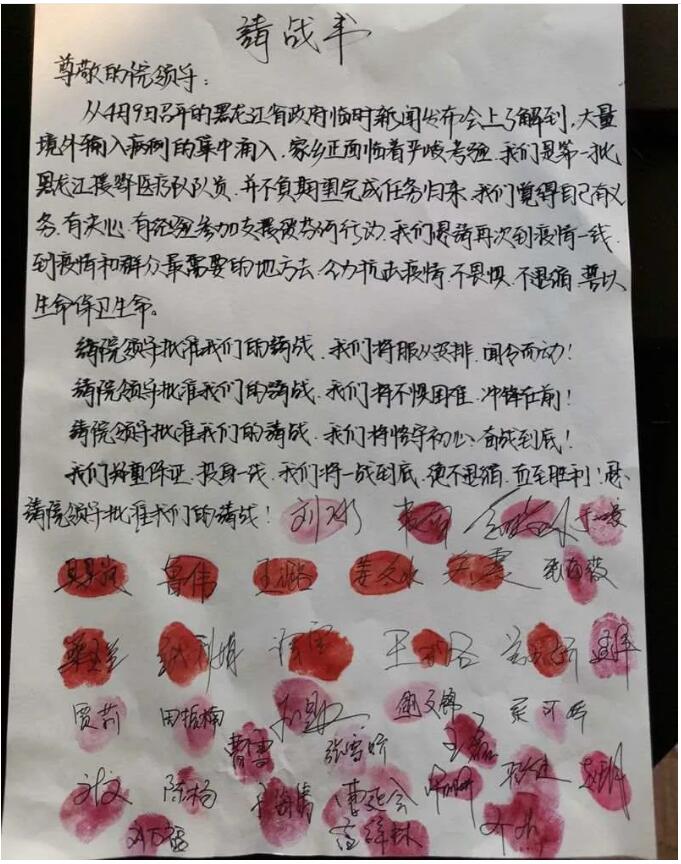 請战书
尊敬的院领导：
从4月9日召开的黑龙江省政府临时新闻发布会上了解到，大量
境外输入病例的集中涌入，家乡正面临着严峻考验。我们是第一批
黑龙江援鄂医疗队队员，并不负期望完成任务归来，我们觉得自己有义
务、有决心、有经验参加支援绥芬河行动，我们恳請再次到疫情一线，
到疫情和群众最需要的地方去，全力抗击疫情，不畏惧、不退缩，誓以
生命保卫生命。
請院领导批准我们的請战，我们将服从安排，闻令而动！
請院领导批准我们的請战，我们将不惧困难，冲锋在前！
請院领导批准我们的請战，我们将恪守初心，奋战到底！
我们郑重保证，投身一线，我们将一战到底，绝不退缩，直至胜利！恳
請院领导批准我们的請战！ 刘冰
鲁伟 王璐 姜久冰 张雨薇
贾莉 田振楠
曹雪 张雪昕 王磊
刘文 陈杨
高祥林